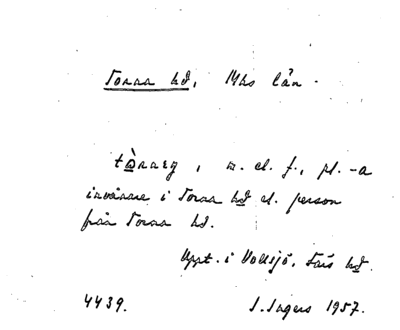 Toraa hd, Mhs län.
tòraarg, m. el. f., pl. -a
invånare i Toraa hd el. person
från Toraa hd.
Uppt. i Vollsjö, Färs hd.
4439. I. Ingers 1957.